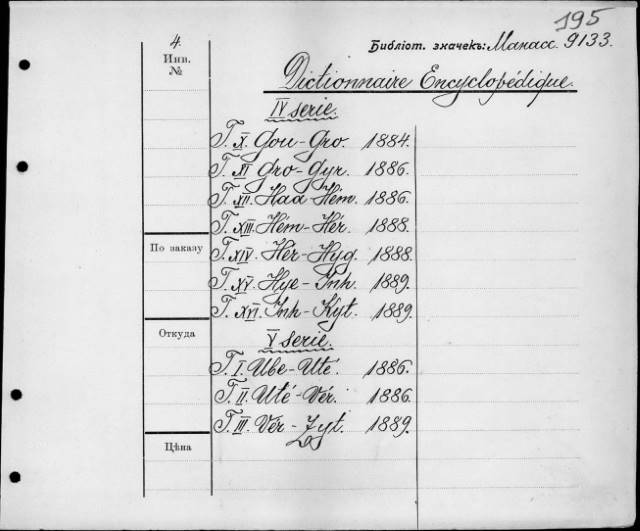 195
4.
Библіот. значекъ: Манасс. 9133.
Инв.
№
Dictionnaire Encyclopédique.
IV serie.
T. X. Gou-Gro. 1884.
T. XI Gro-Gyr. 1886.
T. XII. Haa-Hem. 1886.
T. XIII. Hém-Hér. 1888.
По заказу
T. XIV. Hér-Hyg. 1888.
T. XV. Hye-Inh. 1889.
T. XVI. Inh-Kyt. 1889.
Откуда
V serie.
T. I. Ube-Uté. 1886.
T. II. Uté-Vér. 1886.
T. III. Vér-Zyt. 1889.
Цѣна